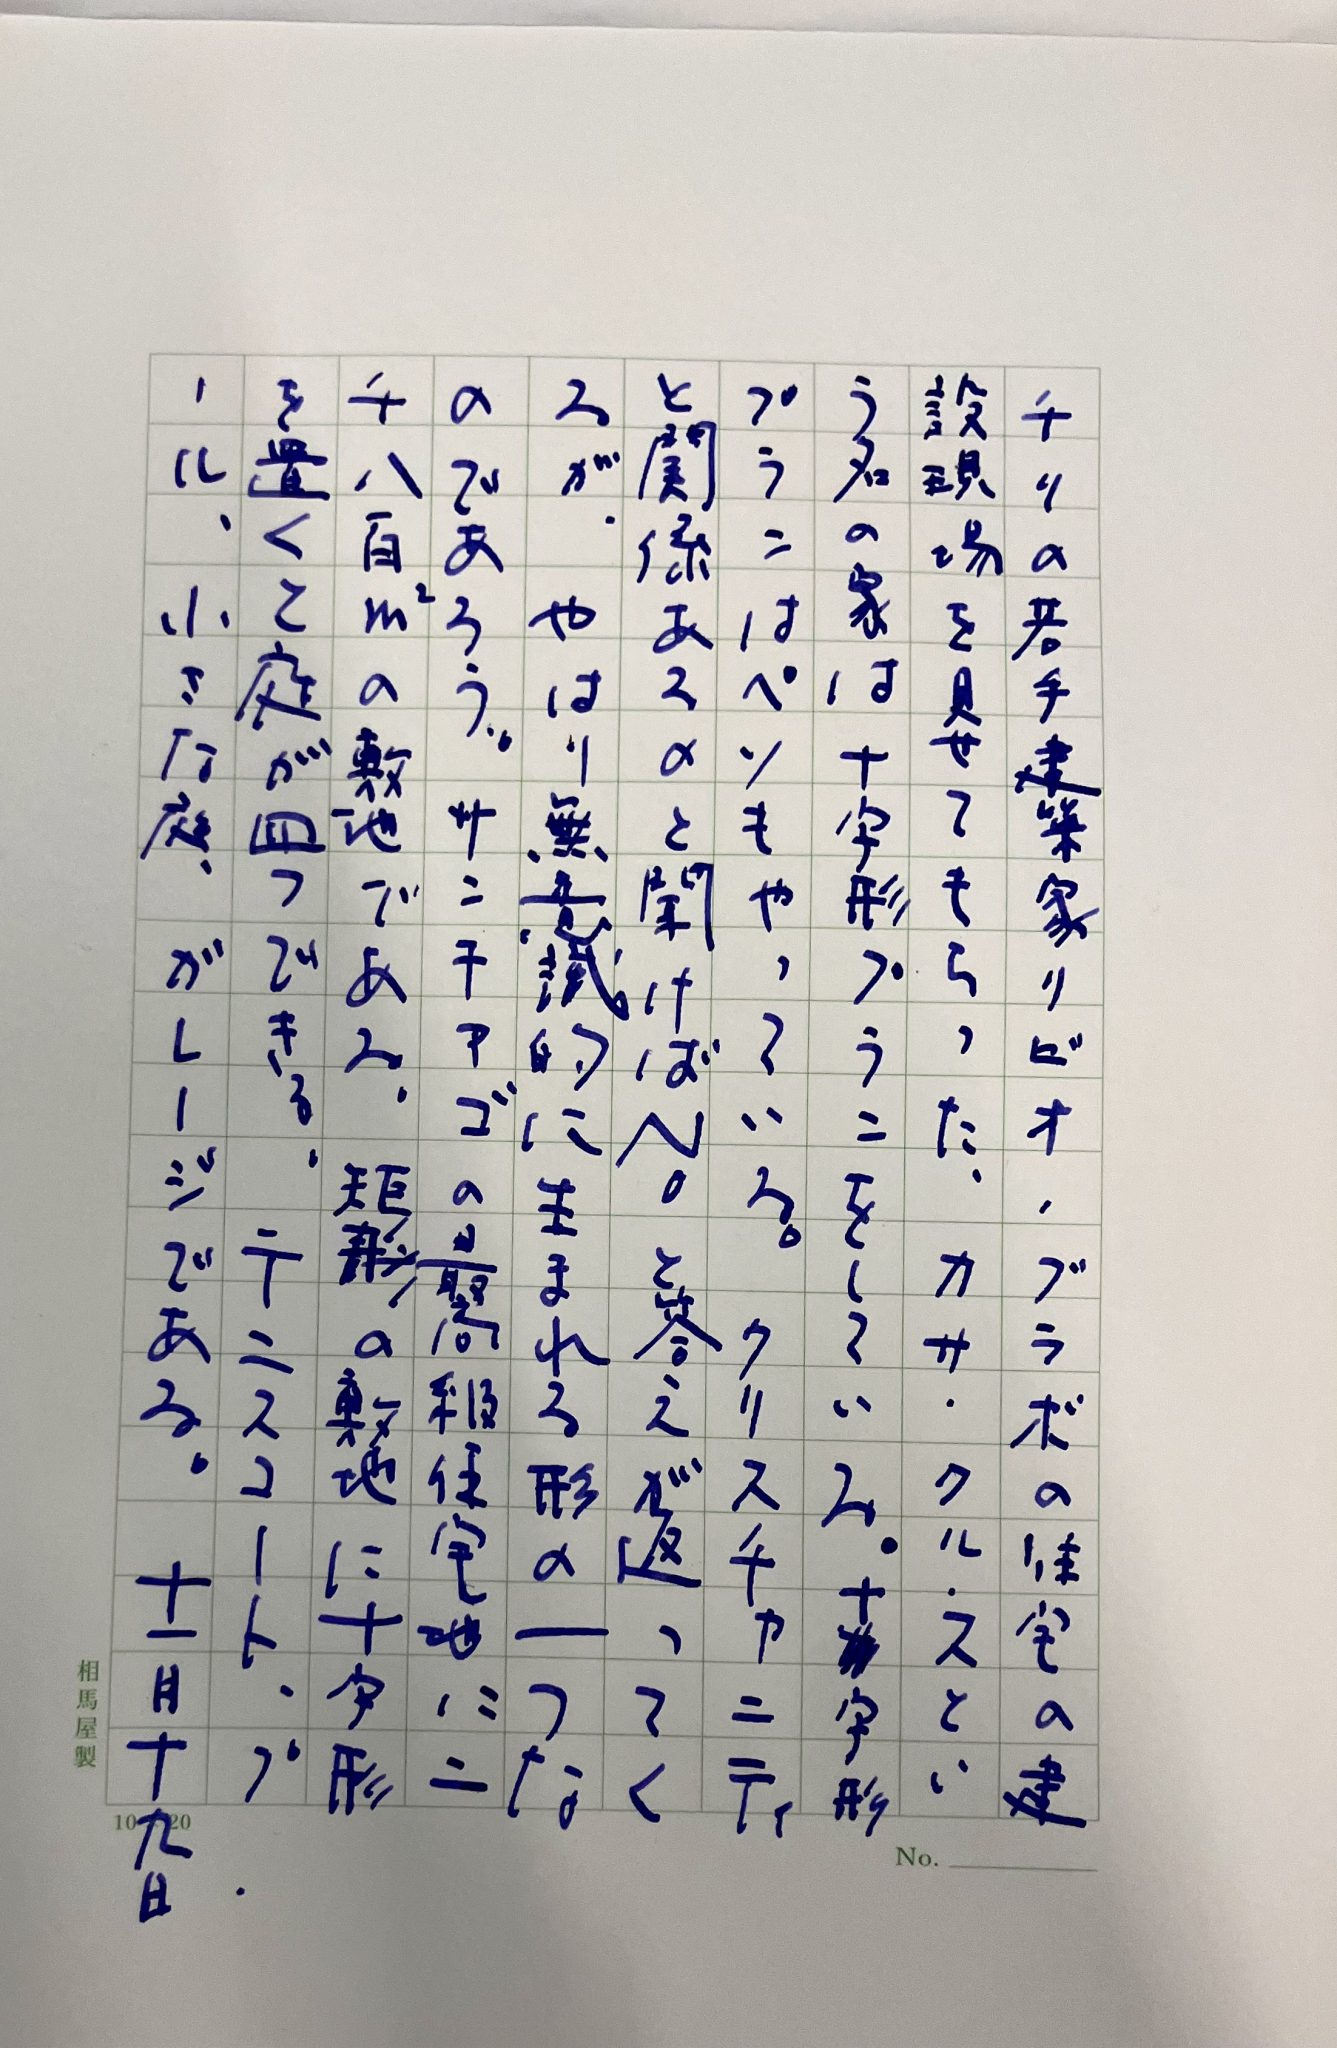 チリの若手建築家リビオ・ブラボの住宅の建
設現場を見せてもらった、カサ・クルスとい
う名の家は十字形プランをしている。十字形
プランはペソもやっている。クリスチャニティ
と関係あるのと聞けばペソと答えが返ってく
るが、やはり無意識的に生まれる形の一つな
のであろう。サンチァゴの最高級住宅地に二
千八百m²の敷地である。矩形の敷地に十字形
を置くと庭が四つできる。テニスコート、プ
ール、小さな庭、ガレージである。十一月十九日
相馬屋製
10 20
No.